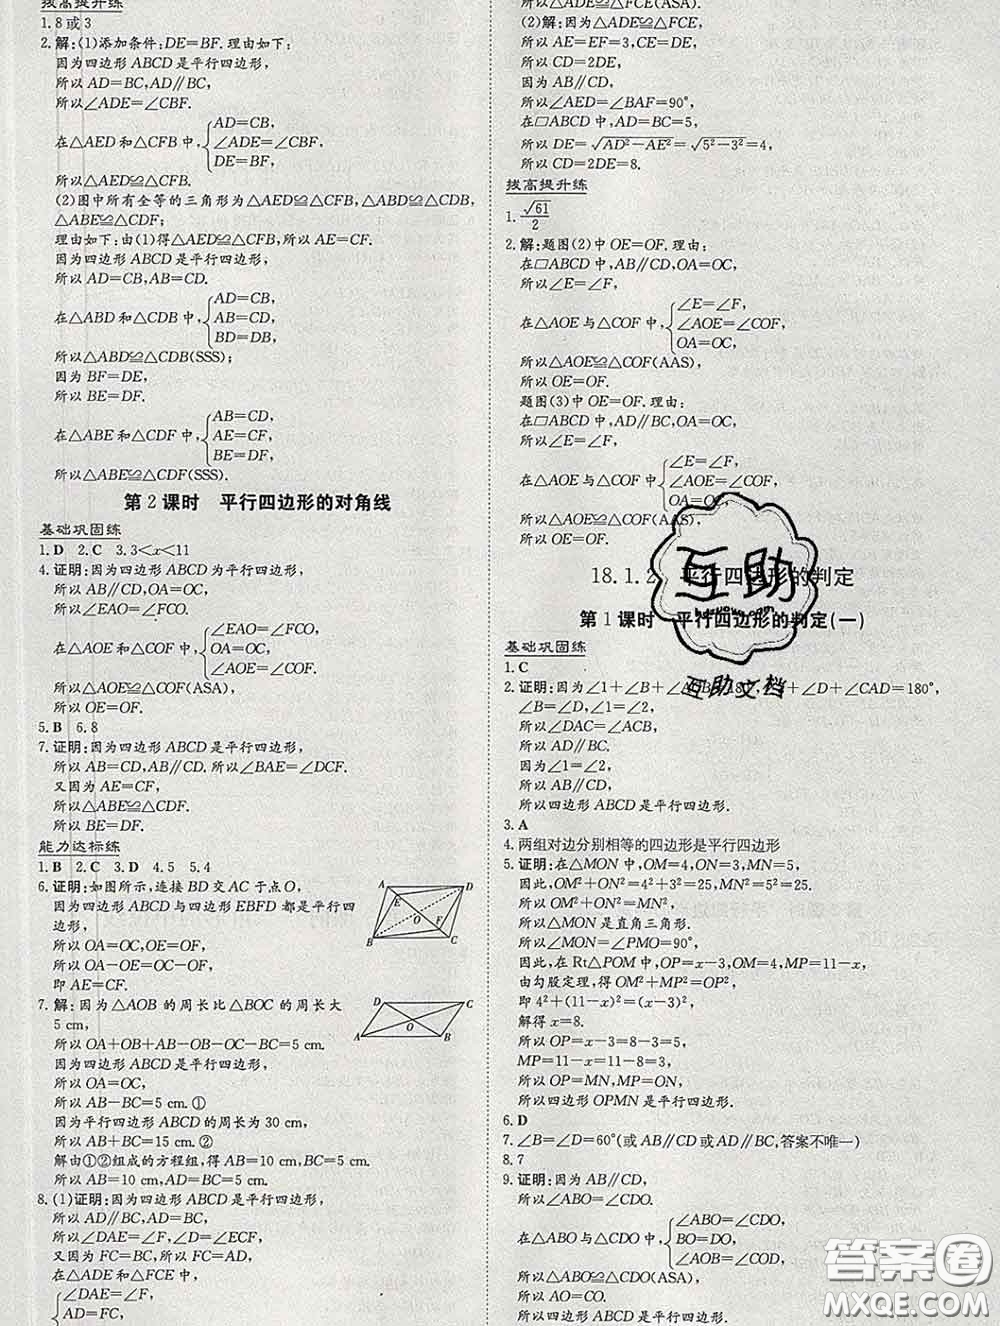 拔高提升练
1.8或3
2.解:(1)添加条件:DE=BF.理由如下:
因为四边形ABCD是平行四边形,
所以AD=BC,AD∥BC,
所以∠ADE=∠CBF.
在△AED和△CFB中,{AD=CB,
∠ADE=∠CBF,
DE=BF,
所以△AED≌△CFB.
(2)图中所有全等的三角形为△AED≌△CFB,△ABD≌△CDB,
△ABE≌△CDF;
理由如下:由(1)得△AED≌△CFB,所以AE=CF.
因为四边形ABCD是平行四边形,
所以AD=CB,AB=CD.
在△ABD和△CDB中,{AD=CB,
AB=CD,
BD=DB,
所以△ABD≌△CDB(SSS);
因为BF=DE,
所以BE=DF.
在△ABE和△CDF中,{AB=CD,
AE=CF,
BE=DF,
所以△ABE≌△CDF(SSS).
第2课时 平行四边形的对角线
基础巩固练
1.D 2.C 3.3<x<11
4.证明:因为四边形ABCD为平行四边形,
所以AB∥CD,OA=OC,
所以∠EAO=∠FCO.
在△AOE和△COF中,{∠EAO=∠FCO,
OA=OC,
∠AOE=∠COF,
所以△AOE≌△COF(ASA),
所以OE=OF.
5.B 6.8
7.证明:因为四边形ABCD是平行四边形,
所以AB=CD,AB∥CD.所以∠BAE=∠DCF.
又因为AE=CF,
所以△ABE≌△CDF.
所以BE=DF.
能力达标练
1.B 2.C 3.D 4.5 5.4
6.证明:如图所示,连接BD交AC于点O,
因为四边形ABCD与四边形EBFD都是平行四边
形,
所以OA=OC,OE=OF,
所以OA-OE=OC-OF,
即AE=CF.
A
D
E
O
F
B
C
7.解:因为△AOB的周长比△BOC的周长大
5 cm,
所以OA+OB+AB-OB-OC-BC=5 cm.
因为四边形ABCD是平行四边形,
所以OA=OC,
所以AB-BC=5 cm.①
因为平行四边形ABCD的周长为30 cm,
所以AB+BC=15 cm.②
解由①②组成的方程组,得AB=10 cm,BC=5 cm.
所以AB=10 cm,BC=5 cm.
D
C
O
A
B
8.(1)证明:因为四边形ABCD是平行四边形,
所以AD∥BC,AB∥CD,
所以∠DAE=∠F,∠D=∠ECF,
又因为FC=BC,所以FC=AD,
在△ADE和△FCE中,
{∠DAE=∠F,
AD=FC,
所以△ADE≌△FCE(ASA).
(2)解:因为△ADE≌△FCE,
所以AE=EF=3,CE=DE,
所以CD=2DE,
因为AB∥CD,
所以∠AED=∠BAF=90°,
在□ABCD中,AD=BC=5,
所以DE=√AD²-AE²=√5²-3²=4,
所以CD=2DE=8.
拔高提升练
1.√61/2
2.解:题图(2)中OE=OF.理由:
在□ABCD中,AB∥CD,OA=OC,
所以∠E=∠F,
在△AOE与△COF中,{∠E=∠F,
∠AOE=∠COF,
OA=OC,
所以△AOE≌△COF(AAS),
所以OE=OF.
题图(3)中OE=OF.理由:
在□ABCD中,AD∥BC,OA=OC,
所以∠E=∠F,
在△AOE与△COF中,{∠E=∠F,
∠AOE=∠COF,
OA=OC,
所以△AOE≌△COF(AAS),
所以OE=OF.
18.1.2 平行四边形的判定
第1课时 平行四边形的判定(一)
互助
互助文档
基础巩固练
1.C
2.证明:因为∠1+∠B+∠ACB=180°,∠2+∠D+∠CAD=180°,
∠B=∠D,∠1=∠2,
所以∠DAC=∠ACB,
所以AD∥BC.
因为∠1=∠2,
所以AB∥CD,
所以四边形ABCD是平行四边形.
3.A
4.两组对边分别相等的四边形是平行四边形
5.证明:在△MON中,OM=4,ON=3,MN=5,
因此,OM²+ON²=4²+3²=25,
所以OM²+ON²=MN²,
所以△MON是直角三角形.
所以∠MON=∠PMO=90°,
因此,在Rt△POM中,OP=x-3,OM=4,MP=11-x,
由勾股定理,得OM²+MP²=OP²,
即4²+(11-x)²=(x-3)²,
解得x=8.
所以OP=x-3=8-3=5,
MP=11-x=11-8=3,
所以OP=MN,MP=ON,
所以四边形OPMN是平行四边形.
6.D
7.∠B=∠D=60°(或AB∥CD或AD∥BC,答案不唯一)
8.7
9.证明:因为AB∥CD,
所以∠ABO=∠CDO,
在△ABO与△CDO中,{∠ABO=∠CDO,
BO=DO,
∠AOB=∠COD,
所以△ABO≌△CDO(ASA),
所以AO=CO.
所以四边形ABCD是平行四边形.
答案圈
MXQE.COM